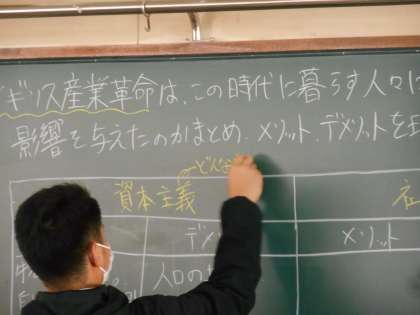 ギリス産業革命は、この時代に暮らす人々に
影響を与えたのかまとめ、メリット、デメリットを
どんな
資本主義
デメ
メリット
人口の